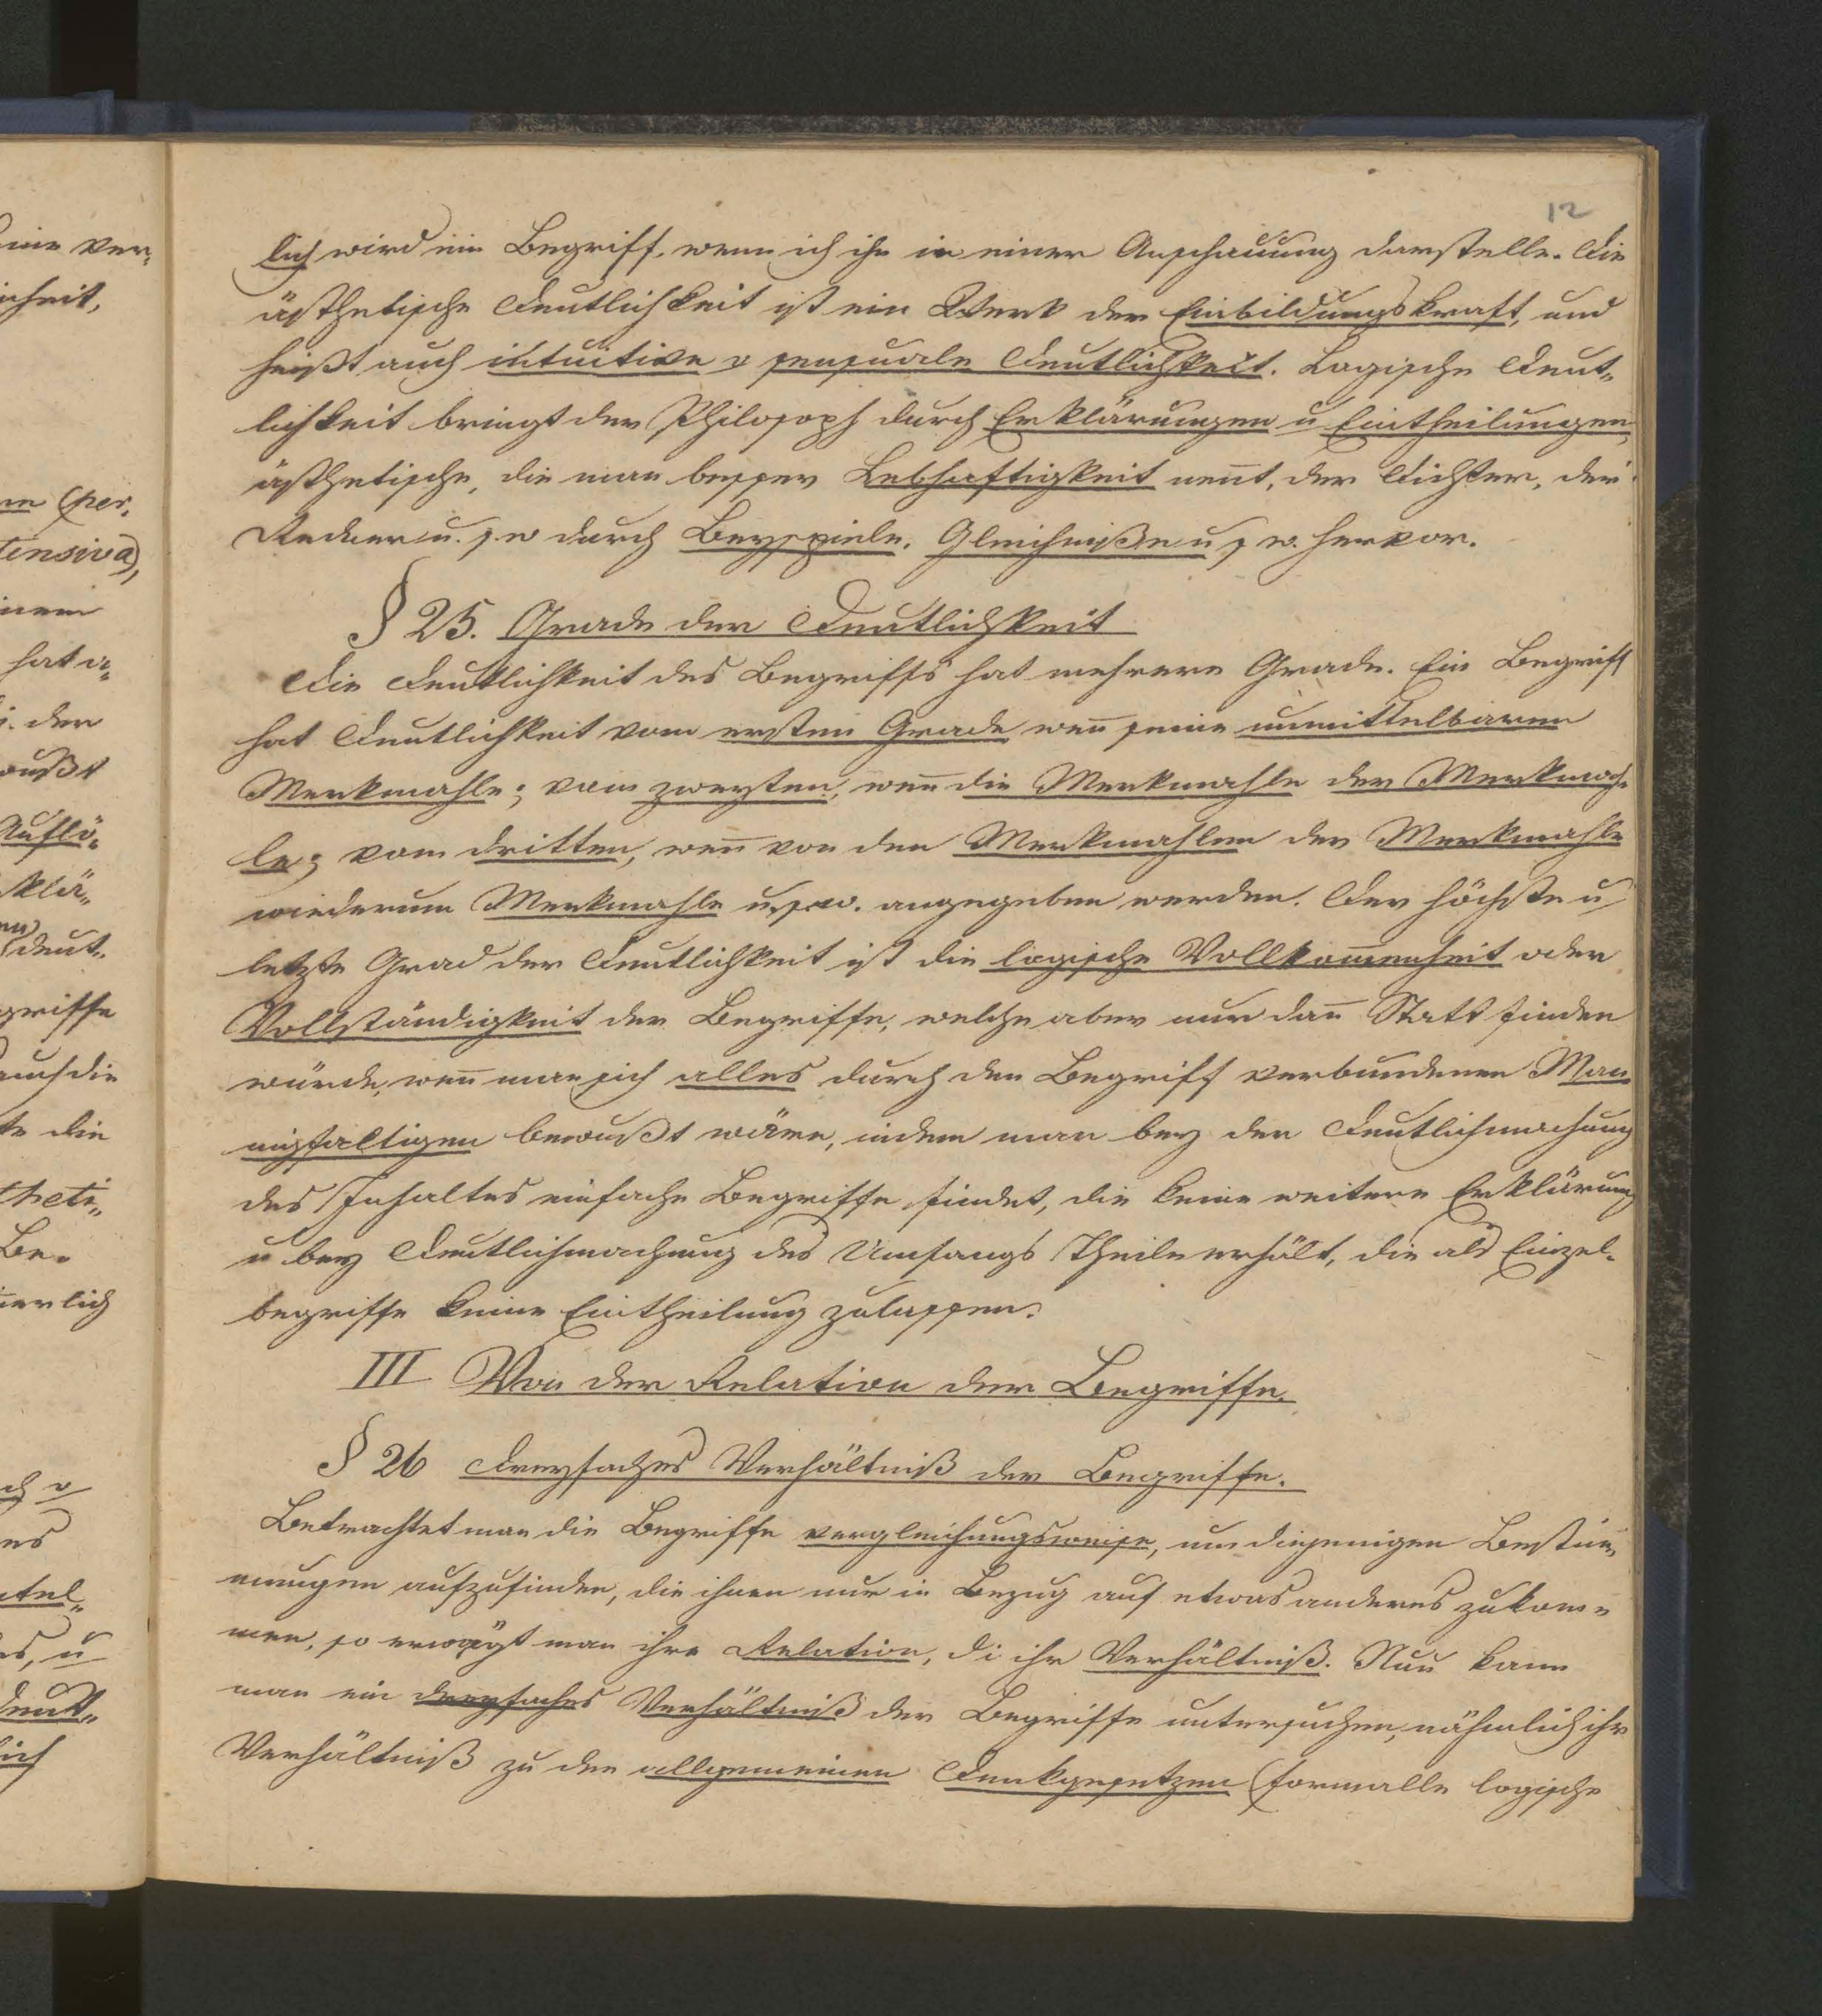 12
lich wird ein Begriff, wenn ich ihn in einer Anschauung darstelle. Die
ästhetische Deutlichkeit ist ein Werk der Einbildungskraft, und
heißt auch intuitive o sensuale Deutlichkeit. Logische Deut„
lichkeit bringt der Philosoph durch Erklärungen u Eintheilungen,
ästhetische, die man besser Lebhaftigkeit nen̄t, der Dichter, der
Redner u. s w durch Beyspiele, Gleichniße u s w. hervor.
§ 25. Grade der Deutlichkeit
Die Deutlichkeit des Begriffs hat mehrere Grade. Ein Begriff
hat Deutlichkeit vom ersten Grade wen̄ seine unmittelbaren
Merkmahle; vom zweyten, wen̄ die Merkmahle der Merkmah„
le; vom dritten, wen̄ von den Merkmahlen der Merkmahle
wiederum Merkmahle u.s.w. angegeben werden. Der höchste u
letzte Grad der Deutlichkeit ist die logische Vollkom̄enheit oder
Vollständigkeit der Begriffe, welche aber nur dan̄ Statt finden
würde, wen̄ man sich alles durch den Begriff verbundenen Man„
nigfaltigen bewußt wäre, indem man bey der Deutlichmachung
des Inhaltes einfache Begriffe findet, die keine weitere Erklärung
u bey Deutlichmachung des Umfangs Theile erhält, die als Einzel„
begriffe keine Eintheilung zulassen.
III Von der Relation der Begriffe.
§ 26 Dreyfaches Verhältniß der Begriffe.
Betrachtet man die Begriffe vergleichungsweise, um diejenigen Bestim̄„
mungen aufzufinden, die ihnen nur in Bezug auf etwas anderes zukom„
men, so erwägt man ihre Relation, di ihr Verhältniß. Nun kann
man ein dreyfaches Verhältniß der Begriffe untersuchen, nähmlich ihr
Verhältniß zu den allgemeinen Denkgesetzen (formalle logische